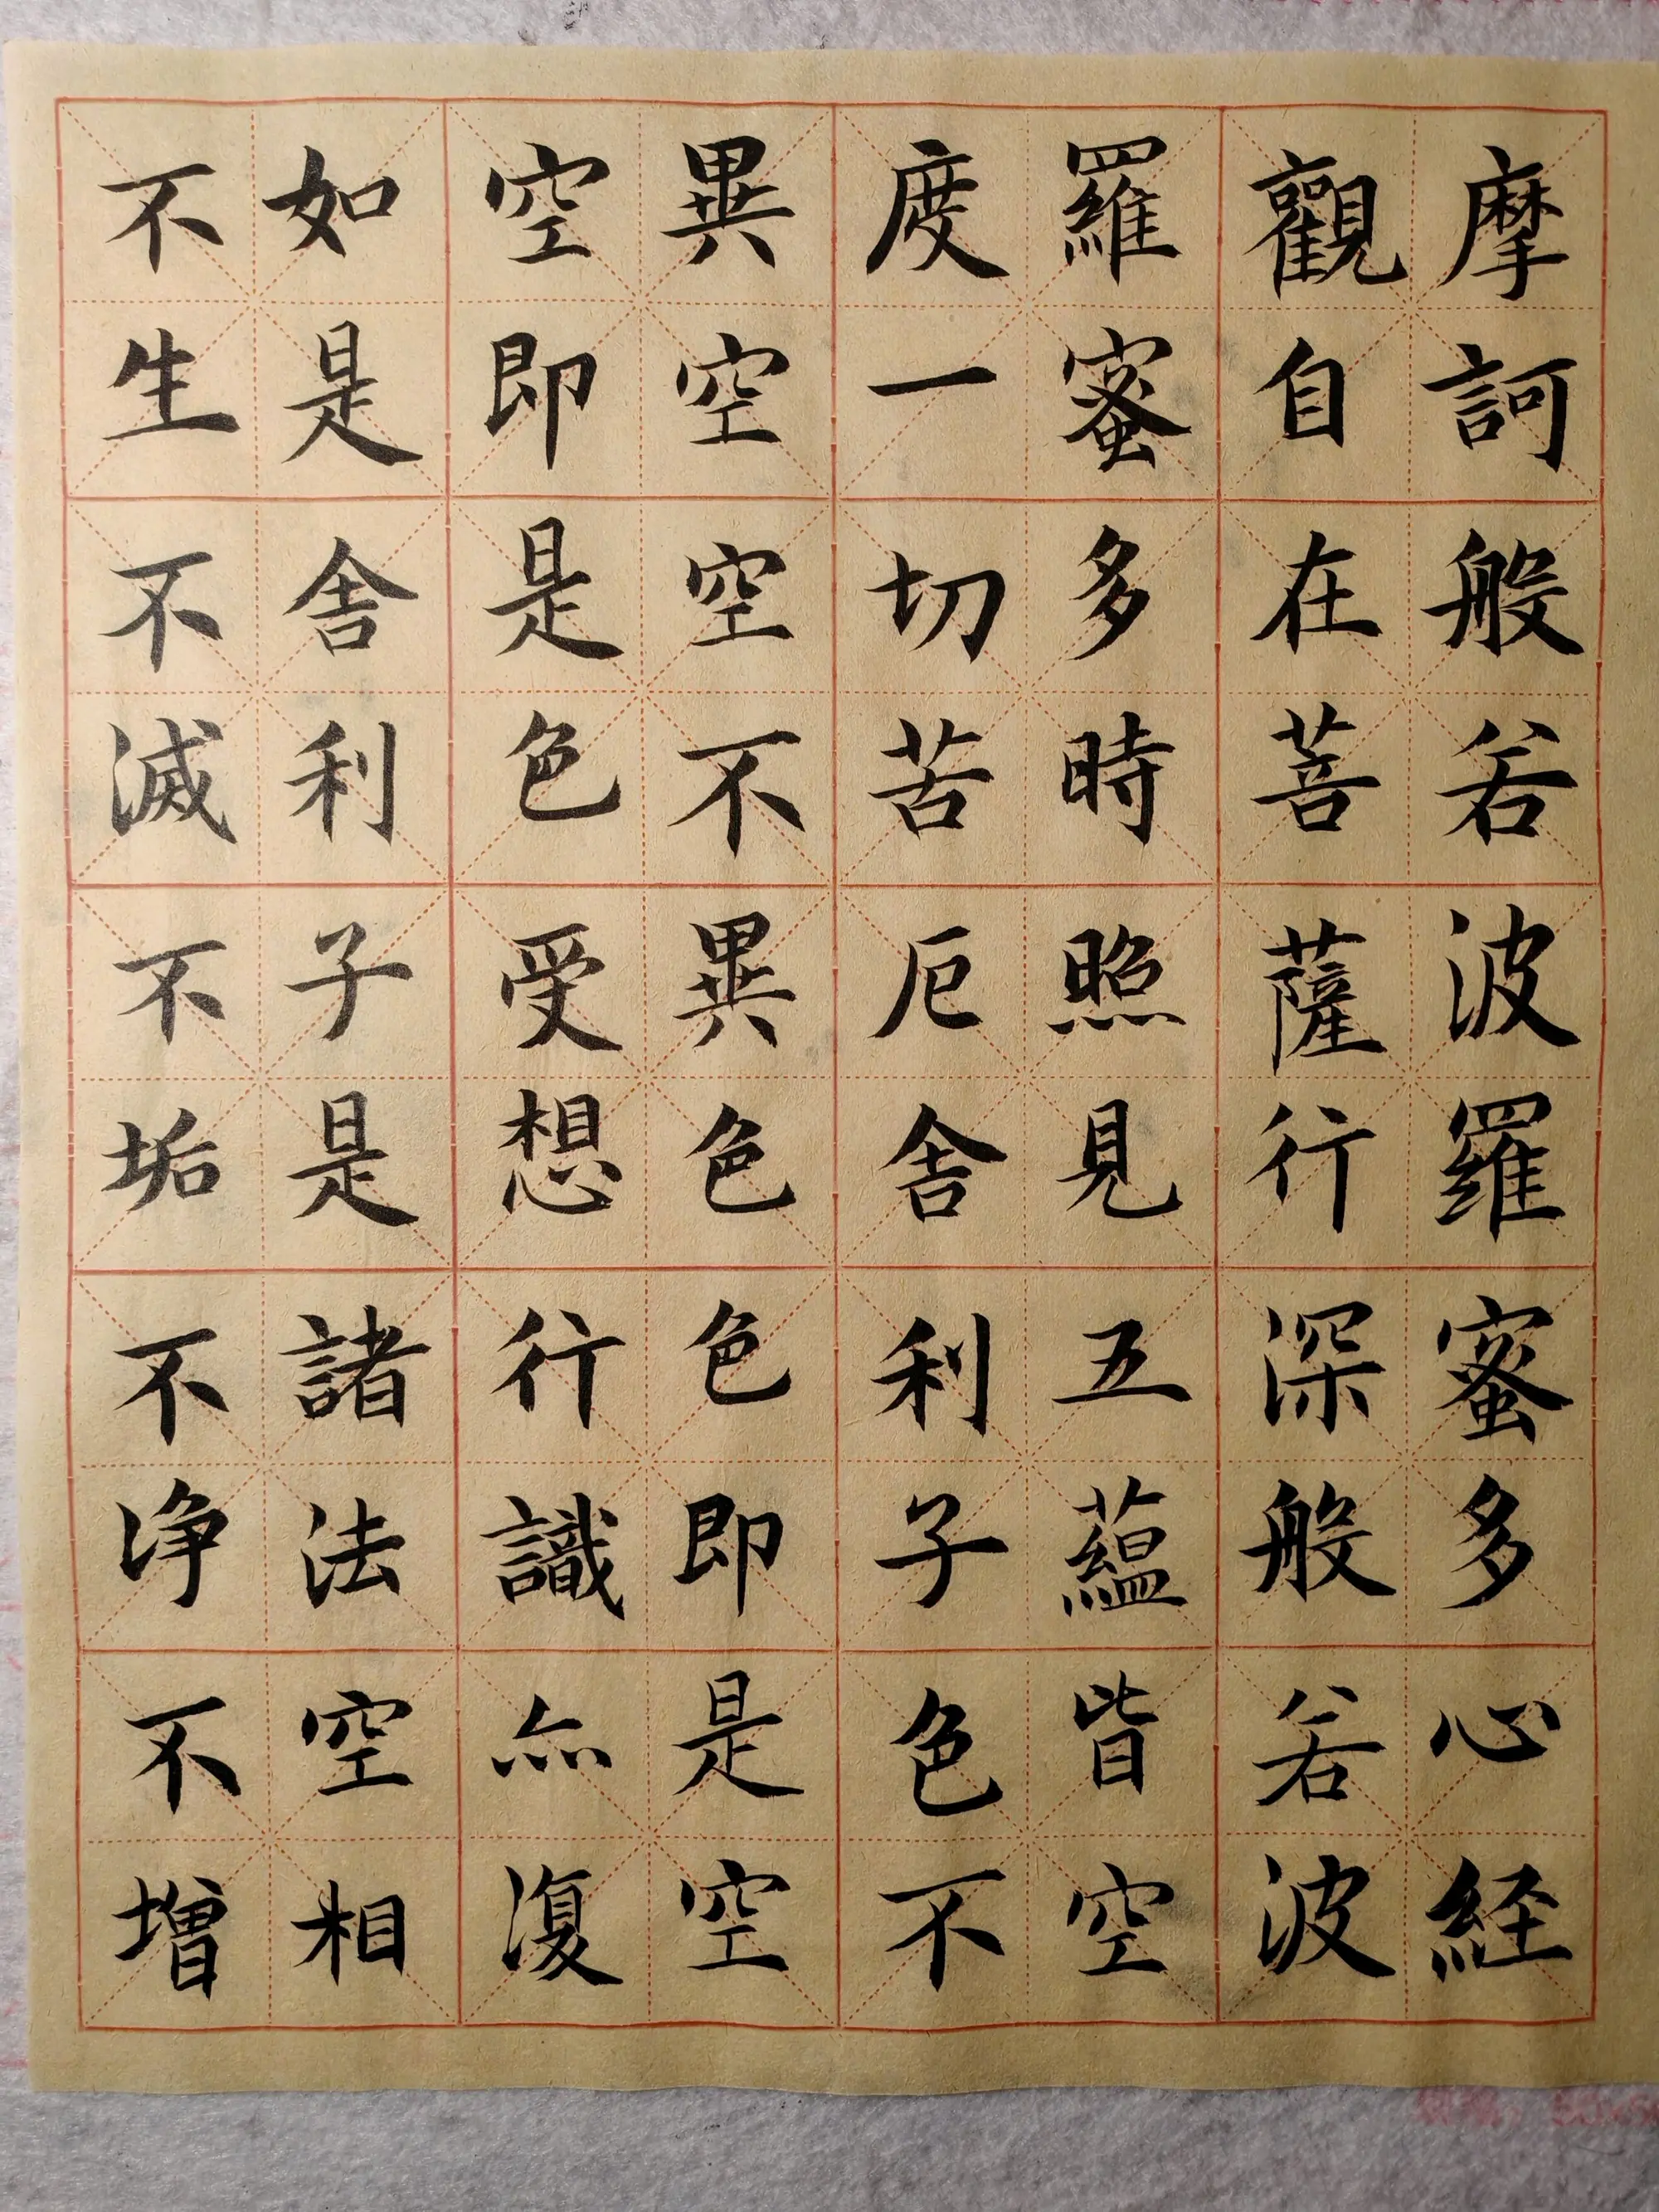 摩訶般若波羅蜜多心経
觀自在菩薩行深般若波
羅蜜多時照見五蘊皆空
度一切苦厄舍利子色不
異空空不異色色即是空
空即是色受想行識亦復
如是舍利子是諸法空相
不生不滅不垢不净不增